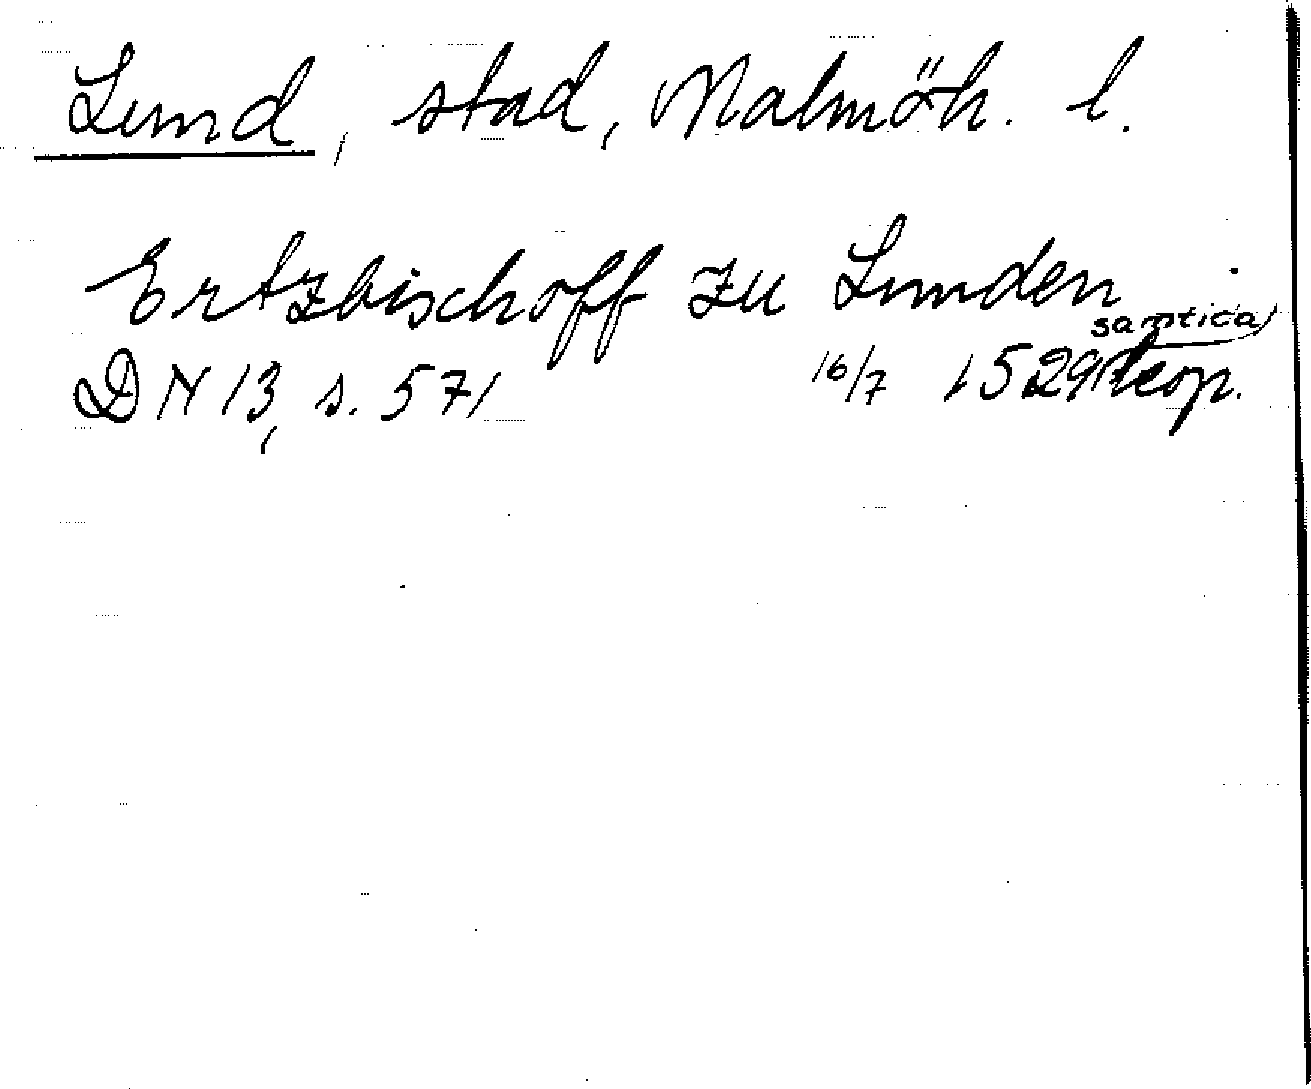 Lund, stad, Malmöh. l.
Ertzbischoff zu Lunden
DN 13, s. 571 16/7 1529 samtida kop.